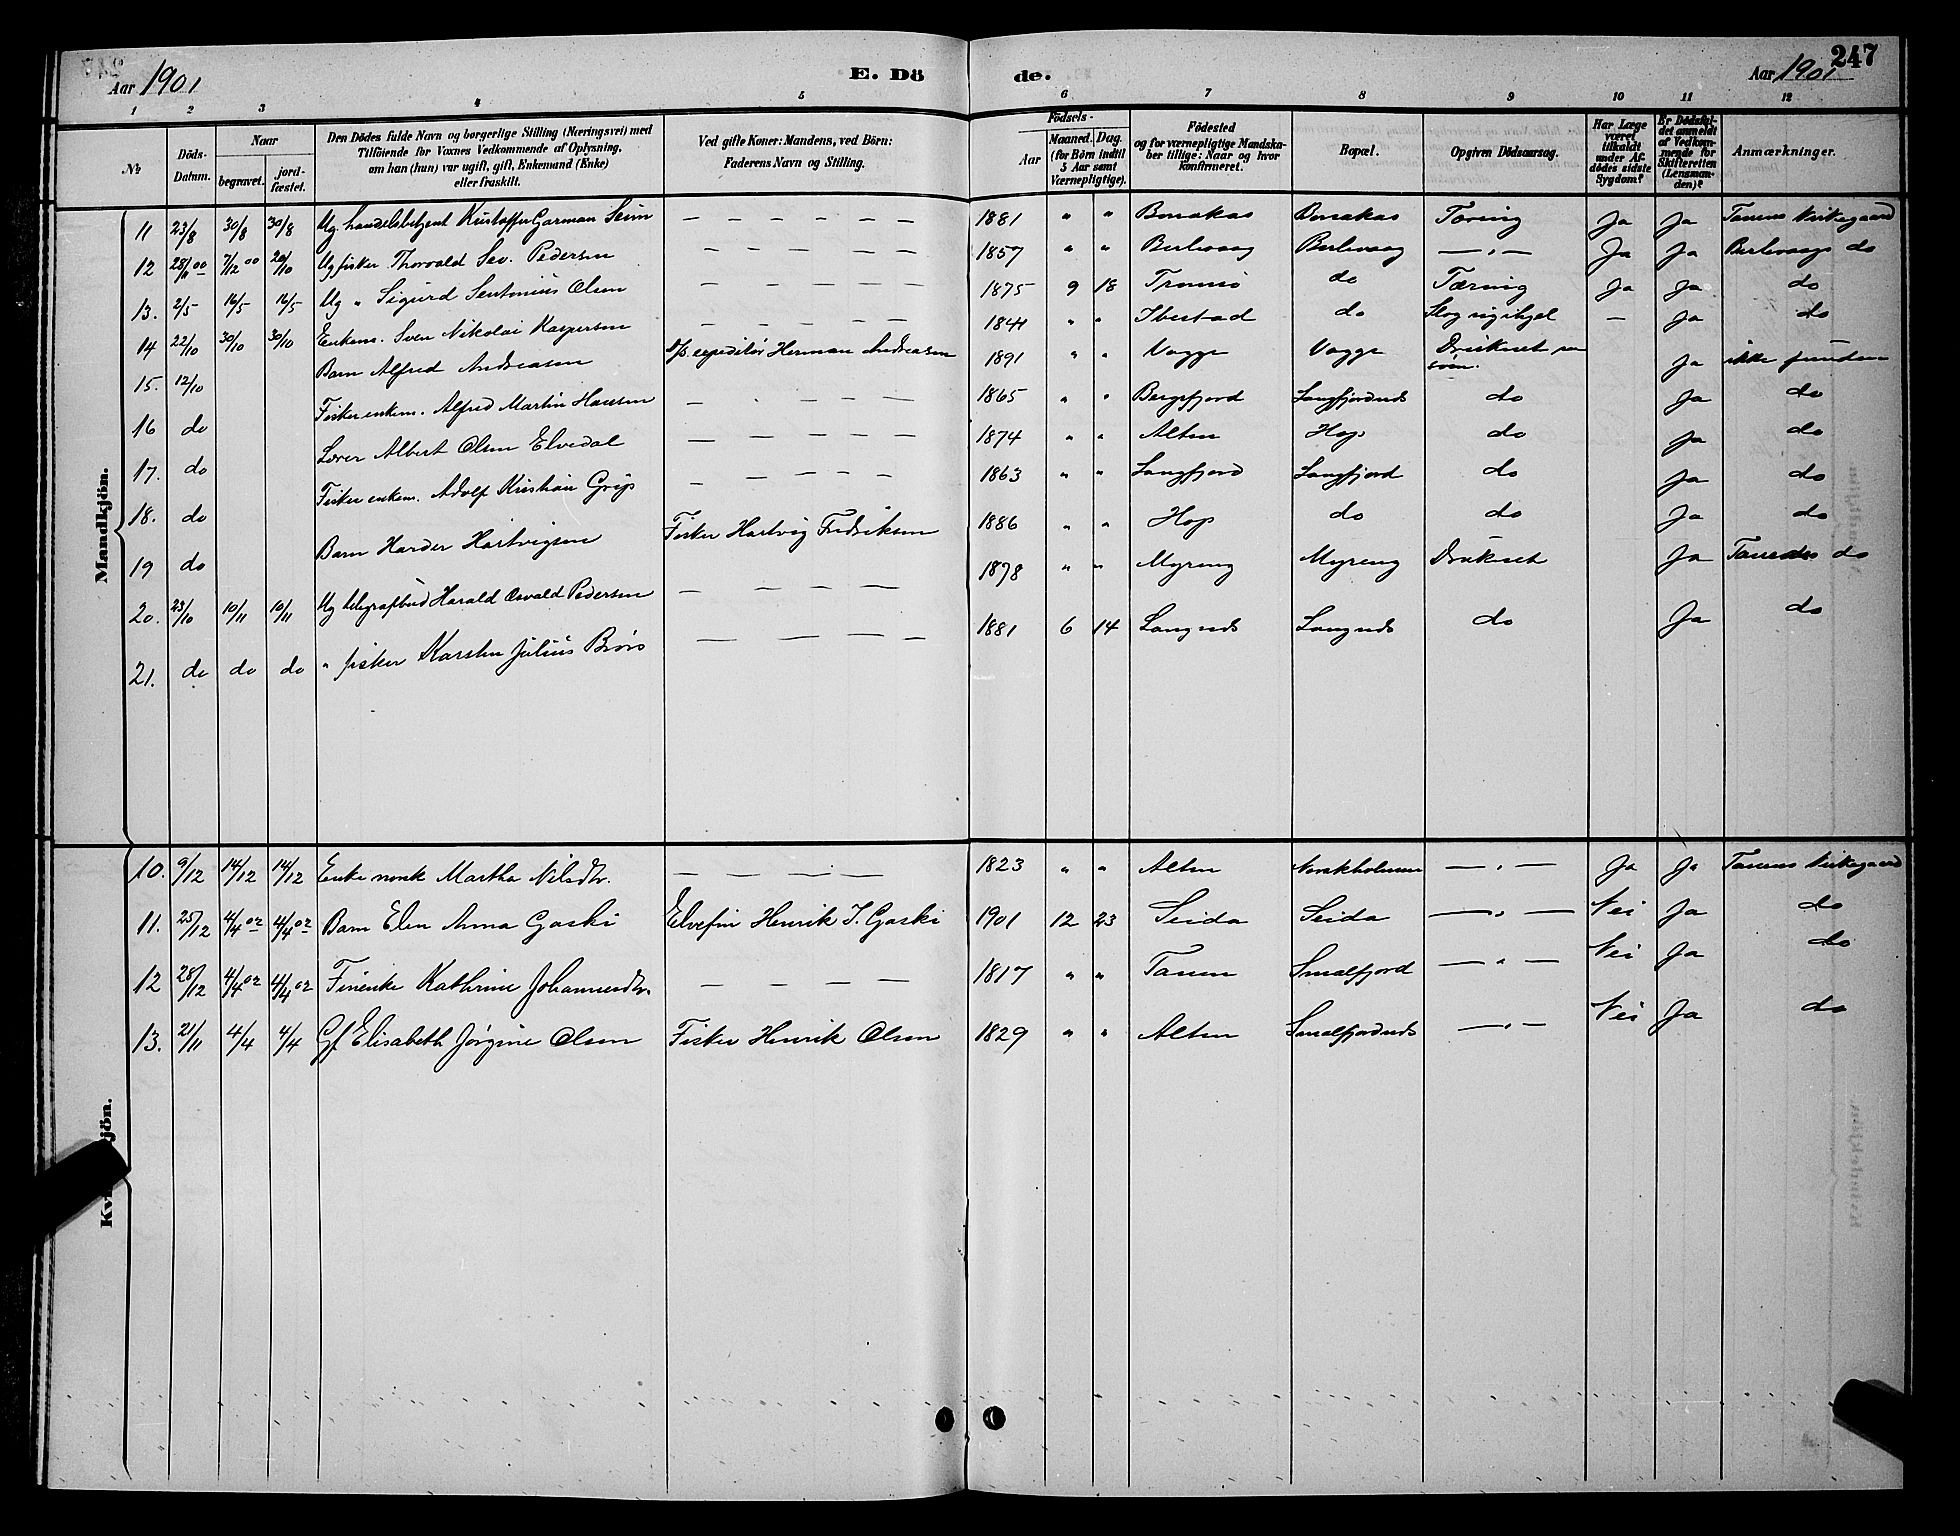 Aar 1901
E. Dö de.
Aar 1901
247
1 2 3 4 5 6 7 8 9 10 11 12
№
Döds-Datum.
Naar
begravet.
jord-fæstet.
Den Dödes fulde Navn og borgerlige Stilling (Næringsvei) med
Tilföiende for Voxnes Vedkommende af Oplysning,
om han (hun) var ugift, gift, Enkemand (Enke)
eller fraskilt.
Ved gifte Koner: Mandens, ved Börn:
Faderens Navn og Stilling.
Födsels-
Aar
Maaned. Dag.
(for Börn indtil
5 Aar samt
Værnepligtige).
Födested
og for værnepligtige Mandska-
ber tillige: Naar og hvor
konfirmeret.
Bopæl.
Opgiven Dödsaarsag.
Har Læge
været
tilkaldt
under Af-
dödes sidste
Sygdom?
Er Dödsfal-
det anmeldt
af Vedkom-
mende for
Skifteretten
(Lensman-
den)?
Anmærkninger.
Mandkjön.
11 23/8 30/8 30/8 Ug. handelsbetjent Kristoffer Garman Seim — — — — — — 1881 " " Bonakas Bonakas Tæring Ja Ja Tanens Kirkegaard
12 28/ 00 7/12 00 20/10 Ug fisker Thorvald Sev. Pedersen — — — — — 1857 " " Berlevaag Berlevaag — " — Ja Ja Berlevaags do
13. 2/5 16/5 16/5 Ug " Sigurd Sentonius Olsen — — — — — 1875 9 18 Tromsö do Tæring Ja Ja do
14 22/10 30/10 30/10 Enkem. Sven Nikolai Kaspersen — — — — — 1841 " " Ibestad do Slog sig ihjel — Ja do
15. 12/10 Barn Alfred Andreasen d/s expeditör Herman Andreasen 1891 " " Vagge Vagge Druknet paa söen. Ja ikke funden
16 do Fisker enkem. Alfred Martin Hansen — — — — — 1865 " " Bergsfjord Langfjordnes do Ja do
17. do Lærer Albert Olsen Elvedal — — — — — 1874 " " Alten Hop do Ja do
18. do Fisker enkem. Adolf Kristian Grip — — — — — 1863 " " Langfjord Langfjord do Ja do
19 do Barn Harder Hartvigsen Fisker Hartvig Fredriksen 1886 " " Hop do do Ja do
20. 23/10 10/11 10/11 Ug telegrafbud Harald Osvald Pedersen — — — — — 1878 " " Myreng Myreng Druknet Ja Tanens do
21. do do do " fisker Karsten Julius Brörs — — — — — 1881 6 14 Langnes Langnes do Ja do
Kv jön.
10. 9/12 14/12 14/12 Enke norsk Martha Nilsdtr. — — — — 1823 " " Alten Norskholmen — " — Ja Ja Tanens Kirkegaard
11. 25/12 4/4 02 4/4 02 Barn Elen Anna Gaski Elvefin Henrik I. Gaski 1901 12 23 Seida Seida — " — Nei Ja do
12 28/12 4/4 02 4/4 02 Finenke Kathrine Johannesdtr. — — — — 1817 " " Tanen Smalfjord — " — Nei Ja do
13. 21/11 4/4 4/4 Gf Elisabeth Jørgine Olsen Fisker Henrik Olsen 1829 " " Alten Smalfjordnes — " — Nei Ja do